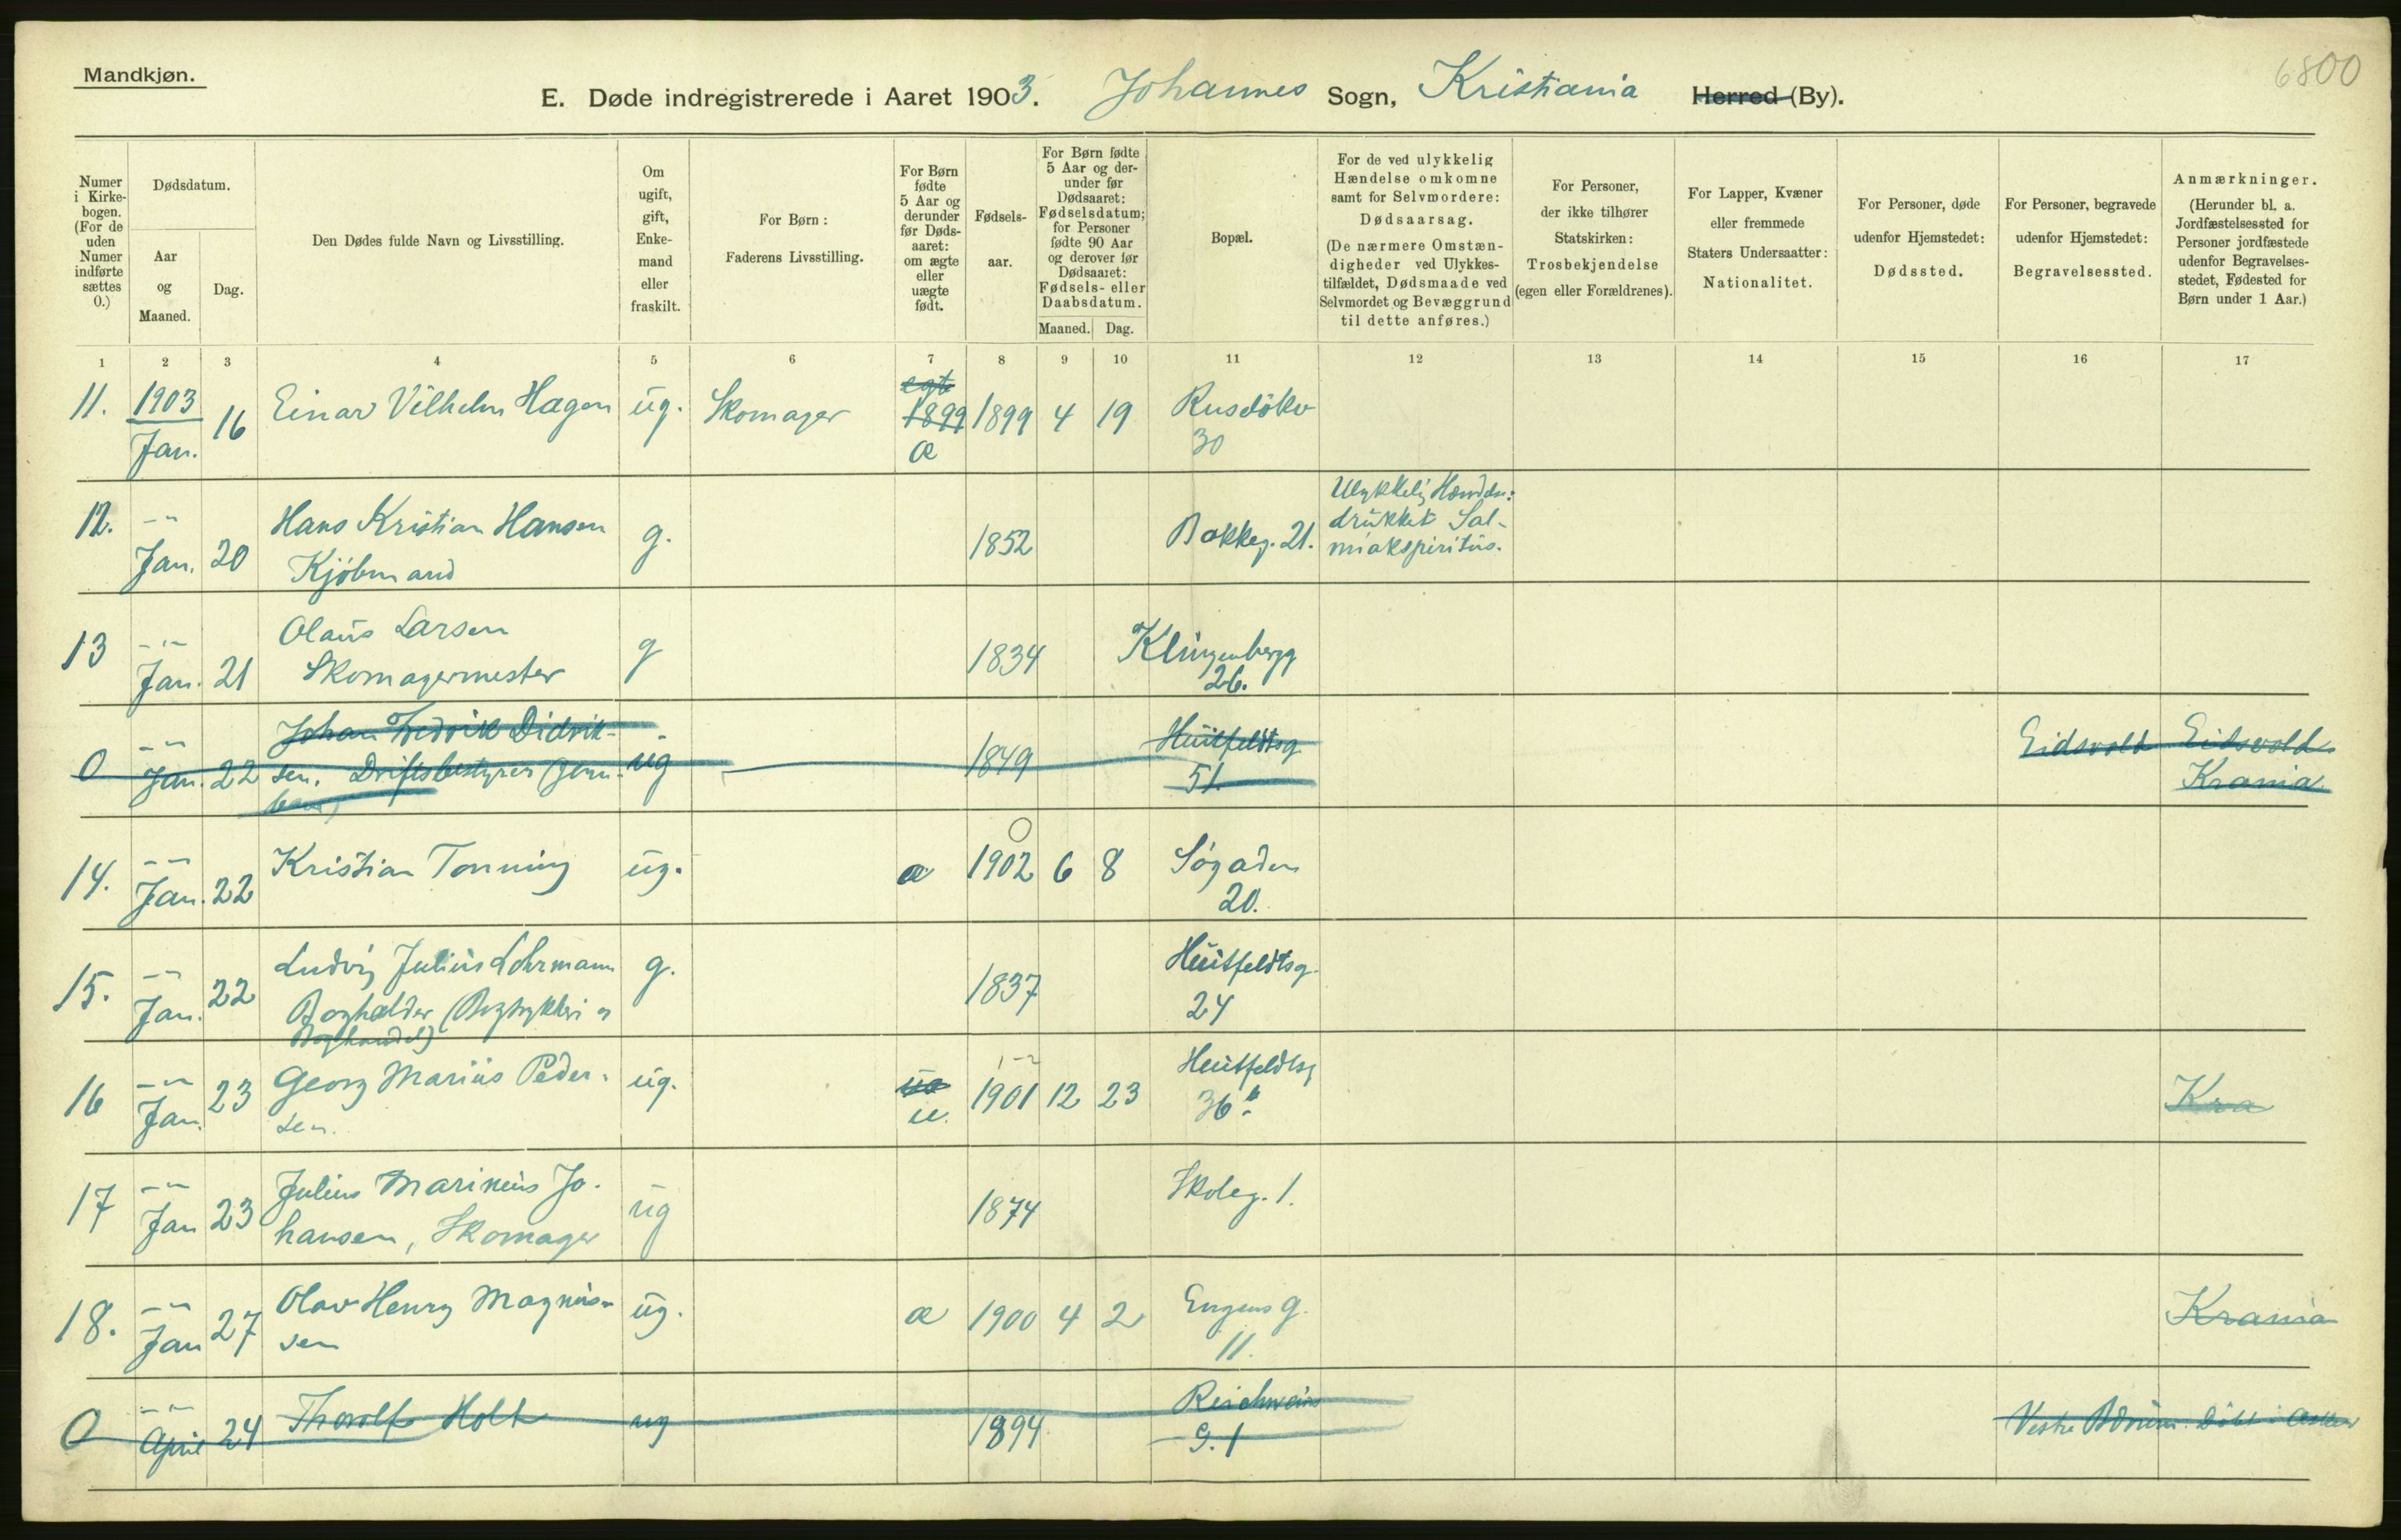 Mandkjøn.
6800
E. Døde indregistrerede i Aaret 1903. Johannes Sogn, Kristiania Herred (By).
Numer i Kirkebogen. (For de uden Numer indførte sættes 0.)
Dødsdatum.
Aar og Maaned.
Dag.
Den Dødes fulde Navn og Livsstilling.
Om ugift, gift, Enkemand eller fraskilt.
For Børn: Faderens Livsstilling.
For Børn fødte 5 Aar og derunder før Dødsaaret: om ægte eller uægte født.
Fødselsaar.
For Børn fødte 5 Aar og derunder før Dødsaaret: Fødselsdatum; for Personer fødte 90 Aar og derover før Dødsaaret: Fødsels- eller Daabsdatum.
Maaned. Dag.
Bopæl.
For de ved ulykkelig Hændelse omkomne samt for Selvmordere: Dødsaarsag. (De nærmere Omstændigheder ved Ulykkestilfældet, Dødsmaade ved Selvmordet og Bevæggrund til dette anføres.)
For Personer, der ikke tilhører Statskirken: Trosbekjendelse (egen eller Forældrenes).
For Lapper, Kvæner eller fremmede Staters Undersaatter: Nationalitet.
For Personer, døde udenfor Hjemstedet: Dødssted.
For Personer, begravede udenfor Hjemstedet: Begravelsessted.
Anmærkninger. (Herunder bl. a. Jordfæstelsessted for Personer jordfæstede udenfor Begravelsesstedet, Fødested for Børn under 1 Aar.)
1 2 3 4 5 6 7 8 9 10 11 12 13 14 15 16 17
11. 1903 Jan. 16 Einar Vilhelm Hagen ug. Skomager egte 1899 æ 1899 4 19 Rusdökv 30
12. -"- Jan. 20 Hans Kristian Hansen Kjöbmand g. 1852 Bakkeg. 21. Ulykkelig Hændelse: drukket Salmiakspiritus.
13 -"- Jan. 21 Olaus Larsen Skomagermester g 1834 Klingenbergg 26.
0 -"- Jan. 22 Johan Fredrik Didriksen. Driftsbestyrer (Jernbane) ug 1849 Huitfeldtsg 51. Eidsvold Eidsvold Krania
14. -"- Jan. 22 Kristian Tonning ug. æ 1902 6 8 Sögaden 20.
15. -"- Jan. 22 Ludvig Julius Lohrmann Bogholder (Bogtrykkeri og Boghandel) g. 1837 Huitfeldtsg. 24
16 -"- Jan. 23 Georg Marius Pedersen. ug. uæ u. 1901 12 23 Huitfeldtsg 36 Kra
17 -"- Jan 23 Julius Marinius Johansen, Skomager ug 1874 Skoleg. 1.
18. -"- Jan 27 Olav Henry Magnussen ug. æ 1900 4 2 Engens g. 11. Krania
0 -"- April 24 Thorolf Holt ug 1894 Reichweins g. 1 Vestre Bærum. Döbt i Asker